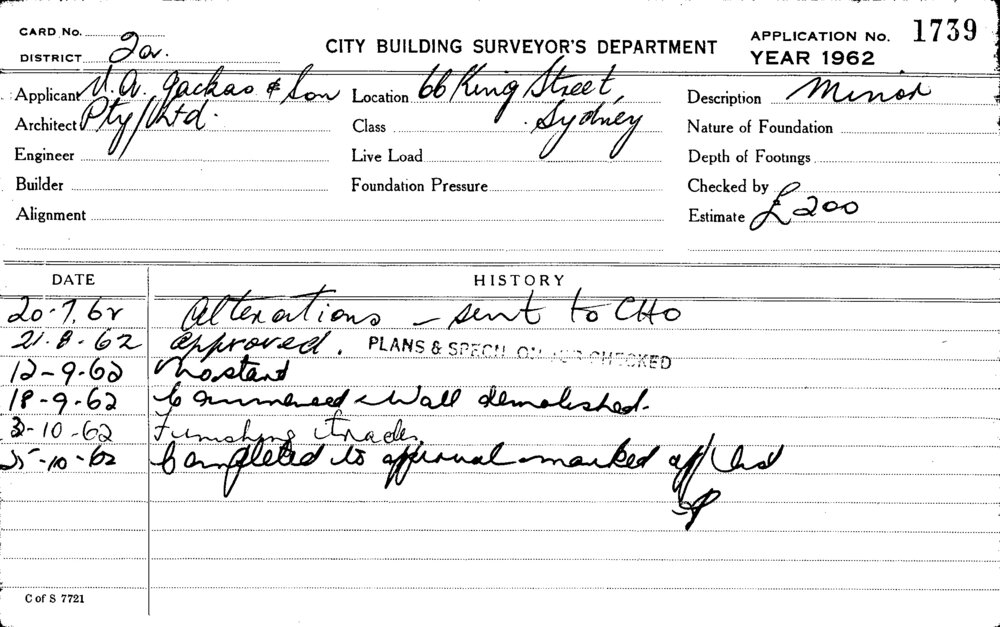 CARD No.
DISTRICT 2a.
CITY BUILDING SURVEYOR'S DEPARTMENT
APPLICATION No. 1739
YEAR 1962
Applicant V.A. & Son
Architect Pty/Ltd.
Engineer
Builder
Alignment
Location 66 King Street,
Class Sydney
Live Load
Foundation Pressure
Description Minor
Nature of Foundation
Depth of Footings
Checked by
Estimate £200
DATE HISTORY
20.7.62 Alterations – sent to CHO
21.8.62 approved. PLANS & SPECN. ON JOB CHECKED
12-9-62 No start
18-9-62 Commenced Wall demolished.
3-10-62 Finishing trades
25-10-62 Completed to approval marked off
C of S 7721